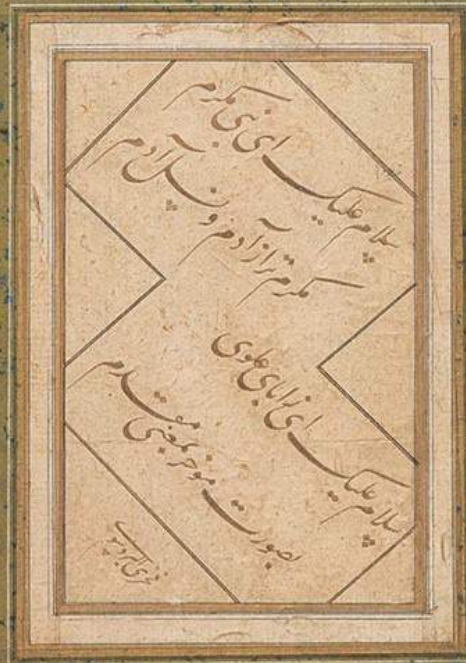 سلام علیک ای نبی مکرم
مکرم تر از آدم و نسل آدم
سلام علیک ای ز آبای علوی
بصورت موخر بمعنی مقدم